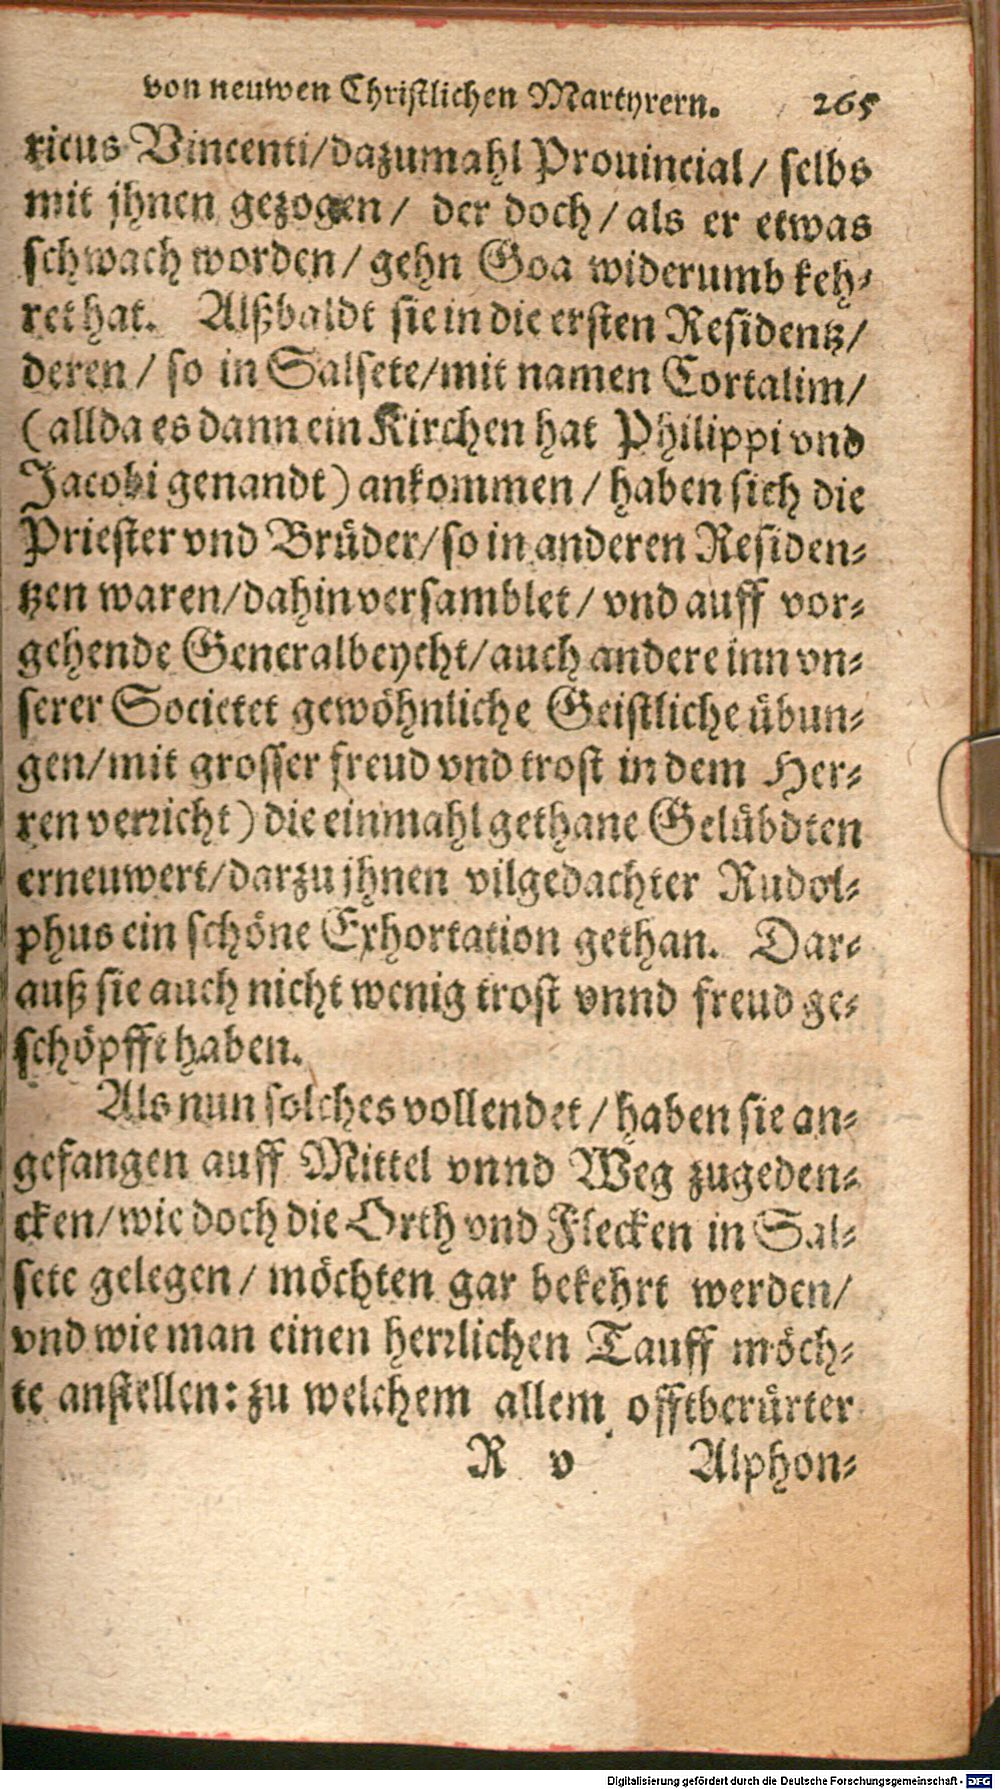 von neuwen Christlichen Martyrern. 265
ricus Vincenti/dazumahl Prouincial/ selbs
mit jhnen gezogen/ der doch/als er etwas
schwach worden/gehn Goa widerumb keh-
ret hat. Alßbaldt sie in die ersten Residentz/
deren/so in Salsete/mit namen Cortalim/
(allda es dann ein Kirchen hat Philippi vnd
Jacobi genandt) ankommen/haben sich die
Priester vnd Brüder/so in anderen Residen-
tzen waren/dahin versamblet/vnd auff vor-
gehende Generalbeycht/auch andere inn vn-
serer Societet gewöhnliche Geistliche übun-
gen/mit grosser freud vnd trost in dem Her-
ren verricht) die einmahl gethane Gelübdten
erneuwert/darzu jhnen vilgedachter Rudol-
phus ein schöne Exhortation gethan. Dar-
auß sie auch nicht wenig trost vnnd freud ge-
schöpfft haben.
Als nun solches vollendet/haben sie an-
gefangen auff Mittel vnnd Weg zugeden-
cken/wie doch die Orth vnd Flecken in Sal-
sete gelegen/möchten gar bekehrt werden/
vnd wie man einen herrlichen Tauff möch-
te anstellen: zu welchem allem offtberürter
R v Alphon-
Digitalisierung gefördert durch die Deutsche Forschungsgemeinschaft - DFG